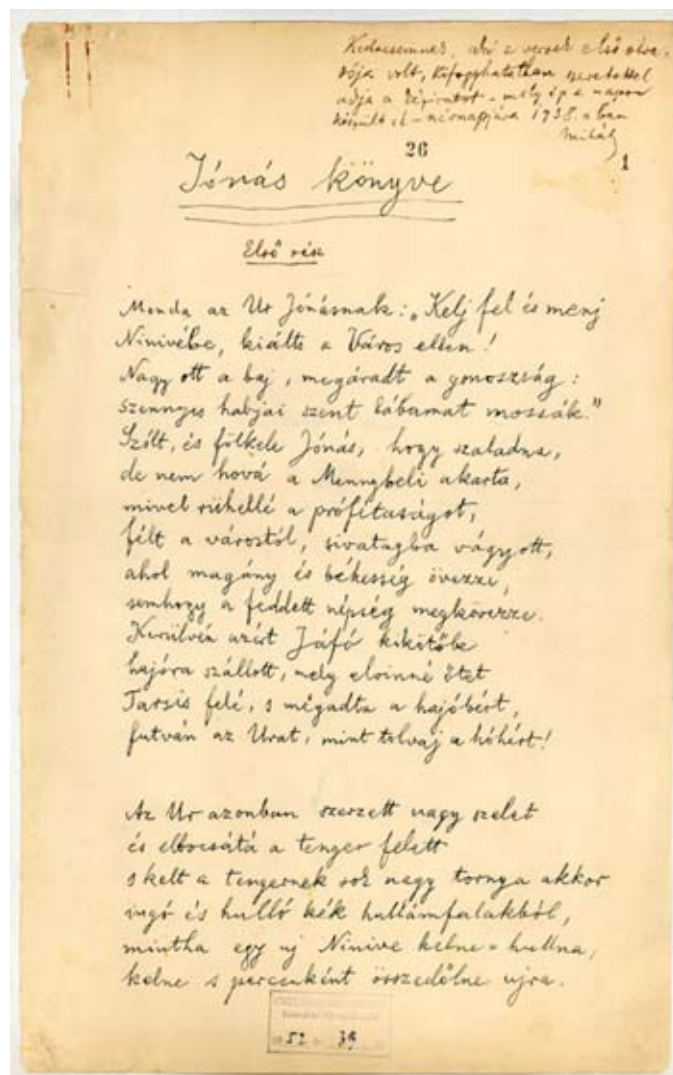 Kedvesemnek, aki e versek első olva-
sója volt, kifogyhatatlan szeretettel
adja a kéziratot - mely ép e napon
készült el - névnapjára 1938.-ban
Mihály
26
1
Jónás könyve
Első rész
Monda az Ur Jónásnak: „Kelj fel és menj
Ninivébe, kiálts a Város ellen!
Nagy ott a baj, megáradt a gonoszság:
szennyes habjai szent lábamat mossák."
Szólt, és fölkele Jónás, hogy szaladna,
de nem hová a Mennybeli akarta,
mivel rühellé a prófétaságot,
félt a várostól, sivatagba vágyott,
ahol magány és békesség övezze,
semhogy a feddett népség megkövezze.
Kerülvén azért Jáfó kikötőbe
hajóra szállott, mely elvinné őtet
Tarsis felé, s megadta a hajóbért,
futván az Urat, mint tolvaj a hóhért!
Az Ur azonban szerzett nagy szelet
és elbocsátá a tenger felett
s kelt a tengernek sok nagy tornya akkor
ingó és hulló kék hullámfalakból,
mintha egy uj Ninive kelne-hullna,
kelne s percenként összedőlne ujra.
52 39